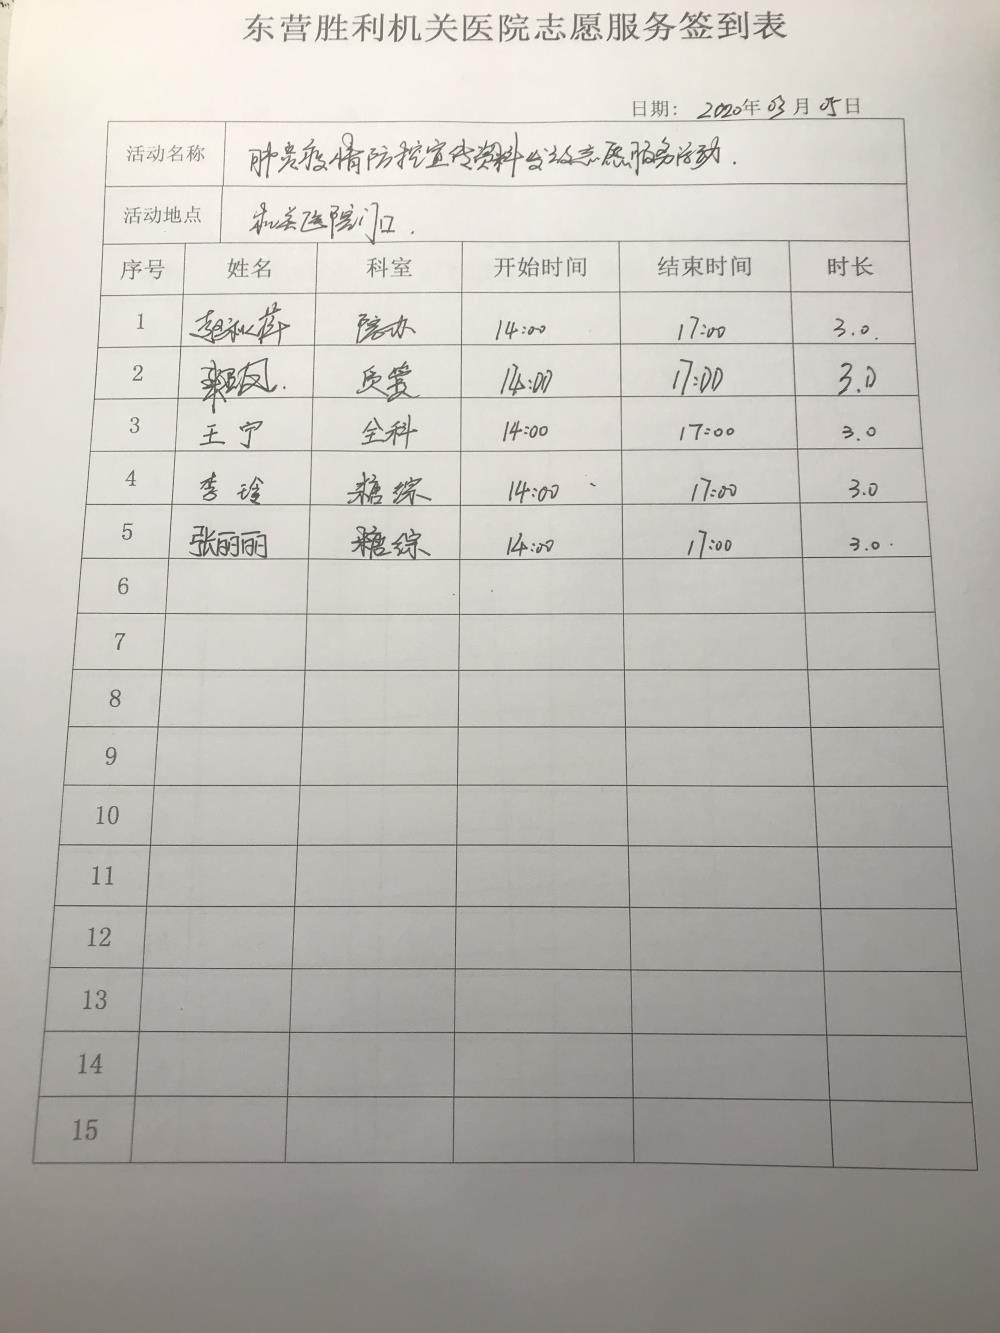 东营胜利机关医院志愿服务签到表
日期: 2020年03月05日
活动名称 肺炎疫情防控宣传资料发放志愿服务活动.
活动地点 机关医院门口.
序号 姓名 科室 开始时间 结束时间 时长
1 院办 14:00 17:00 3.0.
2 14:00 17:00 3.0
3 王宁 全科 14:00 17:00 3.0
4 李 糖综 14:00 17:00 3.0
5 张丽丽 糖综 14:00 17:00 3.0.
6
7
8
9
10
11
12
13
14
15